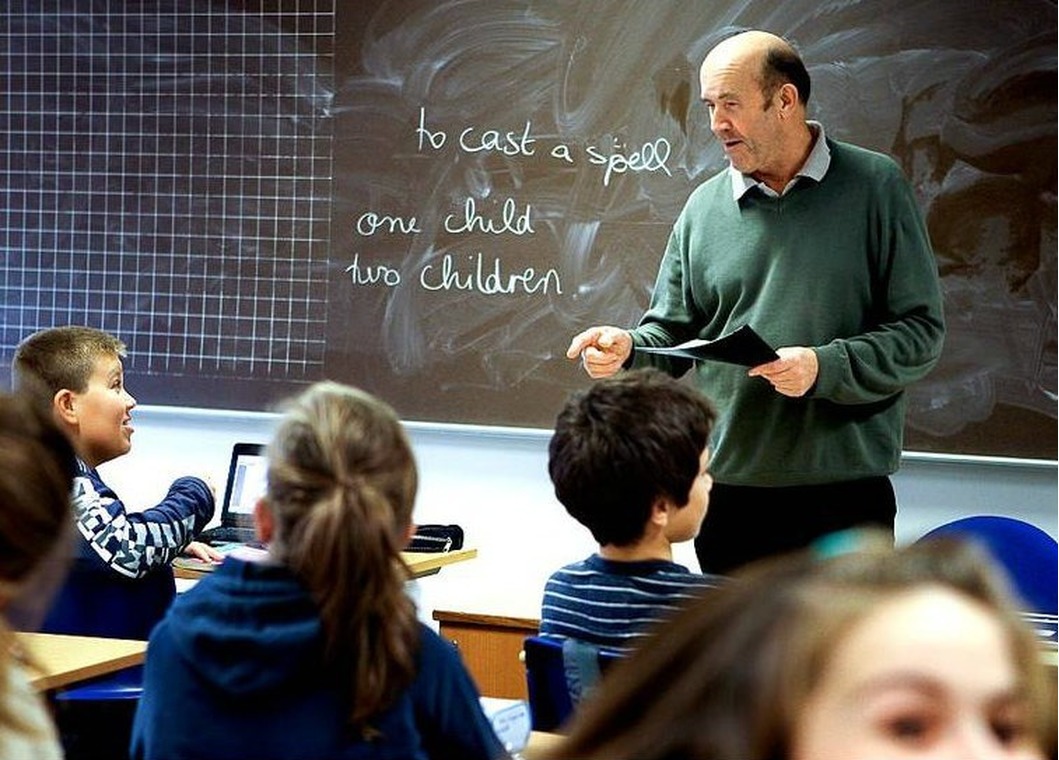 to cast a spell
one child
two children